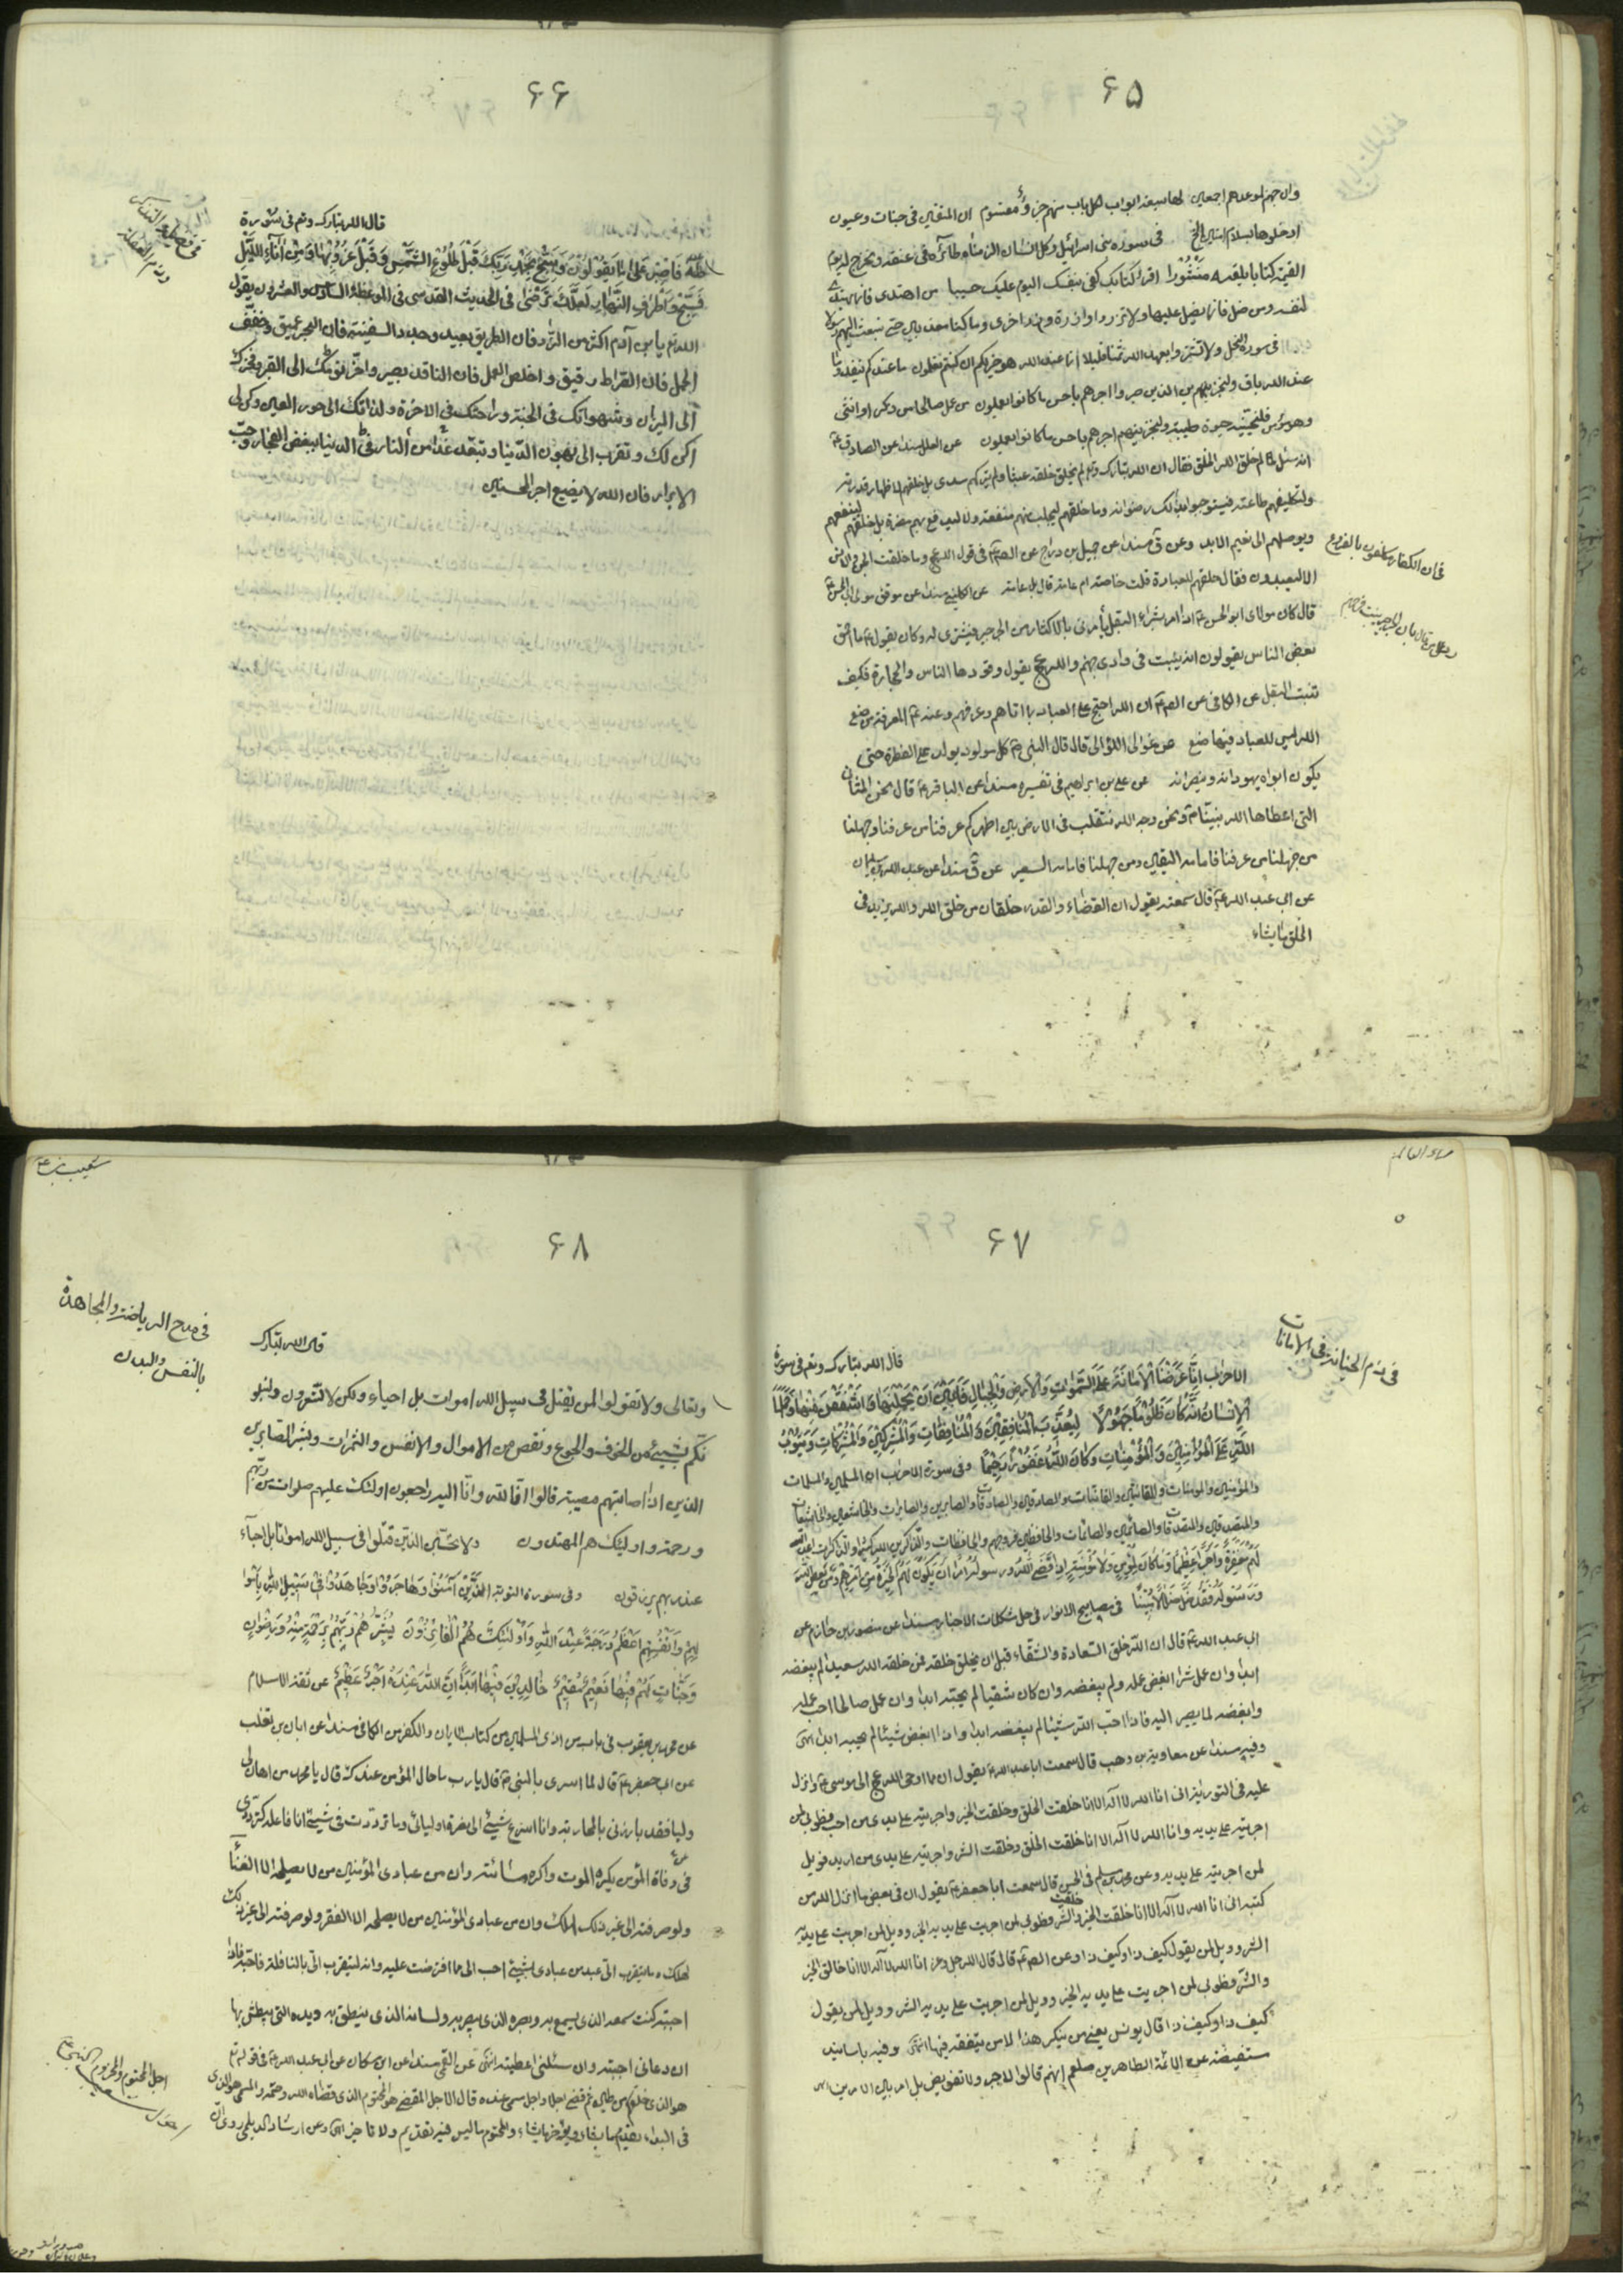 ۶۵
وان جهنم لموعدهم اجمعين لها سبعة ابواب لكل باب منهم جزؤ مقسوم ان المتقين فى جنات وعيون
ادخلوها بسلام امنين الخ فى سورة بنى اسرائيل وكل انسان الزمناه طائره فى عنقه ونخرج له يوم
القيمة كتابا يلقيه منشورا اقرأ كتابك كفى بنفسك اليوم عليك حسيبا من اهتدى فانما يهتدى
لنفسه ومن ضل فانما يضل عليها ولا تزر وازرة وزر اخرى وما كنا معذبين حتى نبعث رسولا
فى سورة النحل ولا تشتروا بعهد الله ثمنا قليلا انما عند الله هو خير لكم ان كنتم تعلمون ما عندكم ينفد وما
عند الله باق ولنجزينهم الذين صبروا اجرهم باحسن ما كانوا يعملون من عمل صالحا من ذكر او انثى
وهو مؤمن فلنحيينه حيوة طيبة ولنجزينهم اجرهم باحسن ما كانوا يعملون عن العلل مسندا عن الصادق ع
انه سئل لم خلق الله الخلق فقال ان الله تبارك وتع لم يخلق خلقه عبثا ولم يتركهم سدى بل خلقهم لاظهار قدرته
ولتكليفهم طاعته فيستوجبوا بذلك رضوانه وما خلقهم ليجلب منهم منفعة ولا ليدفع بهم مضرة بل خلقهم لينفعهم
ويوصلهم الى نعيم الابد وعن ق مسندا عن جميل بن دراج عن الصم فى قول الله عج وما خلقت الجن والانس
الا ليعبدون فقال خلقهم للعبادة قلت خاصة ام عامة قال بل عامة عن الكلينى مسندا عن موفق مولى ابى الحسن ع
قال كان مولاى ابو الحسن ع اذا امر بشراء البقل يأمرنى بالاكثار من الجرجير فيشترى له وكان يقول ع ما احمق
بعض الناس يقولون انه ينبت فى وادى جهنم والله عج يقول وقودها الناس والحجارة فكيف
تنبت البقل عن الكافى عن الصم ان الله احتج على العباد بما اتاهم وعرفهم وعنه ع المعرفة من صنع
الله ليس للعباد فيها صنع عن غوالى اللئالى قال قال النبى ص كل مولود يولد على الفطرة حتى
يكون ابواه يهودانه وينصرانه عن على بن ابراهيم فى تفسيره مسندا عن الباقر ع قال نحن المثانى
التى اعطاها الله نبينا ص ونحن وجه الله نتقلب فى الارض بين اظهركم عرفنا من عرفنا وجهلنا
من جهلنا من عرفنا فامامه اليقين ومن جهلنا فامامه السعير عن ق مسندا عن عبد الله بن سليمان
عن ابى عبد الله ع قال سمعته يقول ان القضاء والقدر خلقان من خلق الله والله يزيد فى
الخلق ما يشاء
فى ان الكفار مكلفون بالفروع
۶۶
قال الله تبارك وتع فى سورة
طه فَاصْبِرْ عَلَىٰ مَا يَقُولُونَ وَسَبِّحْ بِحَمْدِ رَبِّكَ قَبْلَ طُلُوعِ الشَّمْسِ وَقَبْلَ غُرُوبِهَا وَمِنْ آنَاءِ اللَّيْلِ
فَسَبِّحْ وَأَطْرَافَ النَّهَارِ لَعَلَّكَ تَرْضَىٰ فى الحديث القدسى فى الموعظة السادس والعشرون يقول
الله تع يا بن آدم اكثر من الزاد فان الطريق بعيد وجدد السفينة فان البحر عميق وخفف
الحمل فان الصراط رقيق واخلص العمل فان الناقد بصير واخر نومك الى القبر وفخرك
الى الميزان وشهواتك فى الجنة وراحتك فى الاخرة ولذاتك الى حور العين وكن لى
اكن لك وتقرب الى بهون الدنيا وتبعد غدا من النار فى الدنيا ببغض الفجار وحب
الابرار فان الله لا يضيع اجر المحسنين
فى فضيلة التفكر
وذم الغفلة
۶۷
فى ذم الخيانة فى الامانات
قال الله تبارك وتع فى سورة
الاحزاب انا عرضنا الامانة على السموات والارض والجبال فابين ان يحملنها واشفقن منها وحملها
الانسان انه كان ظلوما جهولا ليعذب الله المنافقين والمنافقات والمشركين والمشركات ويتوب
الله على المؤمنين والمؤمنات وكان الله غفورا رحيما وفى سورة الاحزاب ان المسلمين والمسلمات
والمؤمنين والمؤمنات والقانتين والقانتات والصادقين والصادقات والصابرين والصابرات والخاشعين والخاشعات
والمتصدقين والمتصدقات والصائمين والصائمات والحافظين فروجهم والحافظات والذاكرين الله كثيرا والذاكرات اعد الله
لهم مغفرة واجرا عظيما وما كان لمؤمن ولا مؤمنة اذا قضى الله ورسوله امرا ان يكون لهم الخيرة من امرهم ومن يعص الله
ورسوله فقد ضل ضلالا مبينا فى مصابيح الانوار فى حل مشكلات الاخبار مسندا عن منصور بن حازم عن
ابى عبد الله ع قال ان الله خلق السعادة والشقاء قبل ان يخلق خلقه فمن خلقه الله سعيدا لم يبغضه
ابدا وان عمل شرا ابغض عمله ولم يبغضه وان كان شقيا لم يحبه ابدا وان عمل صالحا احب عمله
وابغضه لما يصير اليه فاذا احب الله شيئا لم يبغضه ابدا واذا ابغض شيئا لم يحبه ابدا انتهى
وفيه مسندا عن معاوية بن وهب قال سمعت ابا عبد الله ع يقول ان مما اوحى الله عج الى موسى ع وانزل
عليه فى التورية انى انا الله لا اله الا انا خلقت الخلق وخلقت الخير واجريته على يدى من احب فطوبى لمن
اجريته على يديه وانا الله لا اله الا انا خلقت الخلق وخلقت الشر واجريته على يدى من اريد فويل
لمن اجريته على يديه وعن محمد بن مسلم فى الحسن قال سمعت ابا جعفر ع يقول ان فى بعض ما انزل الله من
كتبه انى انا الله لا اله الا انا خلقت الخير وخلقت الشر فطوبى لمن اجريت على يديه الخير وويل لمن اجريت على يديه
الشر وويل لمن يقول كيف ذا وكيف ذا وعن الصم قال قال الله جل وعز انا الله لا اله الا انا خالق الخير
والشر فطوبى لمن اجريت على يديه الخير وويل لمن اجريت على يديه الشر وويل لمن يقول
كيف ذا وكيف ذا قال يونس يعنى من ينكر هذا الامر بتفقه فيها انتهى وفيه باسانيد
مستفيضة عن الائمة الطاهرين صلعم انهم قالوا لا جبر ولا تفويض بل امر بين الامرين انتهى
۶۸
فى مدح الرياضة والمجاهدة
بالنفس والبدن
قال الله تبارك
وتعالى ولا تقولوا لمن يقتل فى سبيل الله اموات بل احياء ولكن لا تشعرون ولنبلو
نكم بشيئ من الخوف والجوع ونقص من الاموال والانفس والثمرات وبشر الصابرين
الذين اذا اصابتهم مصيبة قالوا انا لله وانا اليه راجعون اولئك عليهم صلوات من ربهم
ورحمة واولئك هم المهتدون ولا تحسبن الذين قتلوا فى سبيل الله امواتا بل احياء
عند ربهم يرزقون وفى سورة التوبة الَّذِينَ آمَنُوا وَهَاجَرُوا وَجَاهَدُوا فِي سَبِيلِ اللَّهِ بِأَمْوَا
لِهِمْ وَأَنْفُسِهِمْ أَعْظَمُ دَرَجَةً عِنْدَ اللَّهِ وَأُولَٰئِكَ هُمُ الْفَائِزُونَ يُبَشِّرُهُمْ رَبُّهُمْ بِرَحْمَةٍ مِنْهُ وَرِضْوَانٍ
وَجَنَّاتٍ لَهُمْ فِيهَا نَعِيمٌ مُقِيمٌ خَالِدِينَ فِيهَا أَبَدًا إِنَّ اللَّهَ عِنْدَهُ أَجْرٌ عَظِيمٌ عن ثقة الاسلام
عن محمد بن يعقوب فى باب من اذى المسلمين من كتاب الايمان والكفر من الكافى مسندا عن ابان بن تغلب
عن ابى جعفر ع قال لما اسرى بالنبى ص قال يا رب ما حال المؤمن عندك قال يا محمد من اهان لى
وليا فقد بارزنى بالمحاربة وانا اسرع شيئ الى نصرة اوليائى وما ترددت فى شيئ انا فاعله كترددى
فى وفاة المؤمن يكره الموت واكره مسائته وان من عبادى المؤمنين من لا يصلحه الا الغنا
ولو صرفته الى غير ذلك لهلك وان من عبادى المؤمنين من لا يصلحه الا الفقر ولو صرفته الى غير ذلك
لهلك وما يتقرب الى عبد من عبادى بشيئ احب الى مما افترضت عليه وانه ليتقرب الى بالنافلة فاحبه فاذا
احببته كنت سمعه الذى يسمع به وبصره الذى يبصر به ولسانه الذى ينطق به ويده التى يبطش بها
ان دعانى اجبته وان سئلنى اعطيته انتهى عن القمى مسندا عن ابن مسكان عن ابى عبد الله ع فى قوله تع
هو الذى خلقكم من طين ثم قضى اجلا واجل مسمى عنده قال الاجل المقضى هو المحتوم الذى قضاه الله وحتمه والمسمى هو الذى
فى البداء يقدم ما يشاء ويؤخر ما يشاء والمحتوم ما ليس فيه تقديم ولا تاخير انتهى وعن ارشاد الديلمى روى ان